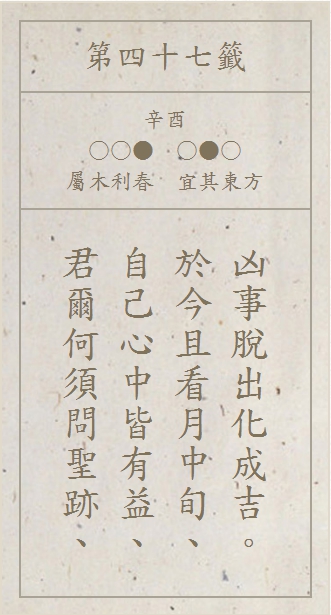 第四十七籤
辛酉
○○● ○●○
屬木利春 宜其東方
君爾何須問聖跡、
自己心中皆有益、
於今且看月中旬、
凶事脫出化成吉。